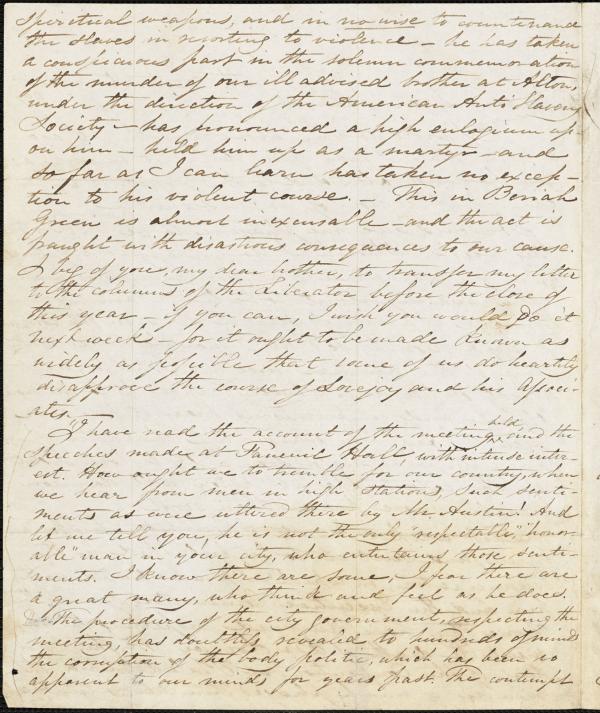 spiritual weapons, and in no wise to countenance
the slaves in resorting to violence – he has taken
a conspicuous part in the solemn commemoration
of the murder of our ill advised brother at Alton,
under the direction of the American Anti Slavery
Society – has pronounced a high eulogium up-
on him – held him up as a martyr – and
so far as I can learn has taken no excep-
tion to his violent course. – This in Beriah
Green is almost inexcusable – and the act is
fraught with disastrous consequences to our cause.
I beg of you, my dear brother, to transfer my letter
to the columns of the Liberator before the close of
this year – if you can, I wish you would do it
next week – for it ought to be made known as
widely as possible that some of us do heartily
disapprove the course of Lovejoy and his associ-
ates. –
"I have read the account of the meeting held, and the
speeches made at Faneuil Hall, with intense inter-
est. How ought we to tremble for our country, when
we hear from men in high stations, such senti-
ments as were uttered there by Mr. Austin! And
let me tell you, he is not the only "respectable," "honor-
able" man in your city, who entertains those senti-
ments. I know there are some, I fear there are
a great many, who think and feel as he does.
The procedure of the city government, respecting the
meeting, has doubtless revealed to hundreds of minds
the corruption of the body politic, which has been so
apparent to our minds for years past. The contempt